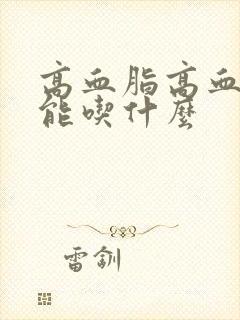 高血脂高血
能喫什麼
雷釧